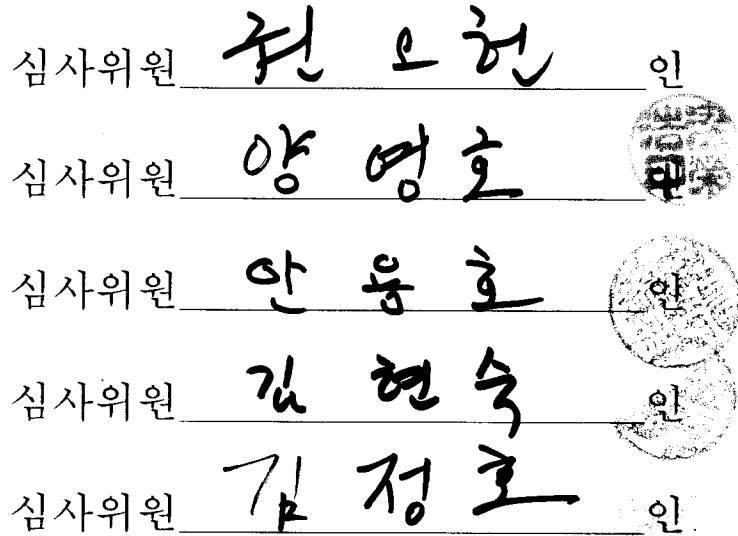 심사위원 권 오 헌 인
심사위원 양 영 호 인
심사위원 안 용 호 인
심사위원 김 현 숙 인
심사위원 김 정 호 인